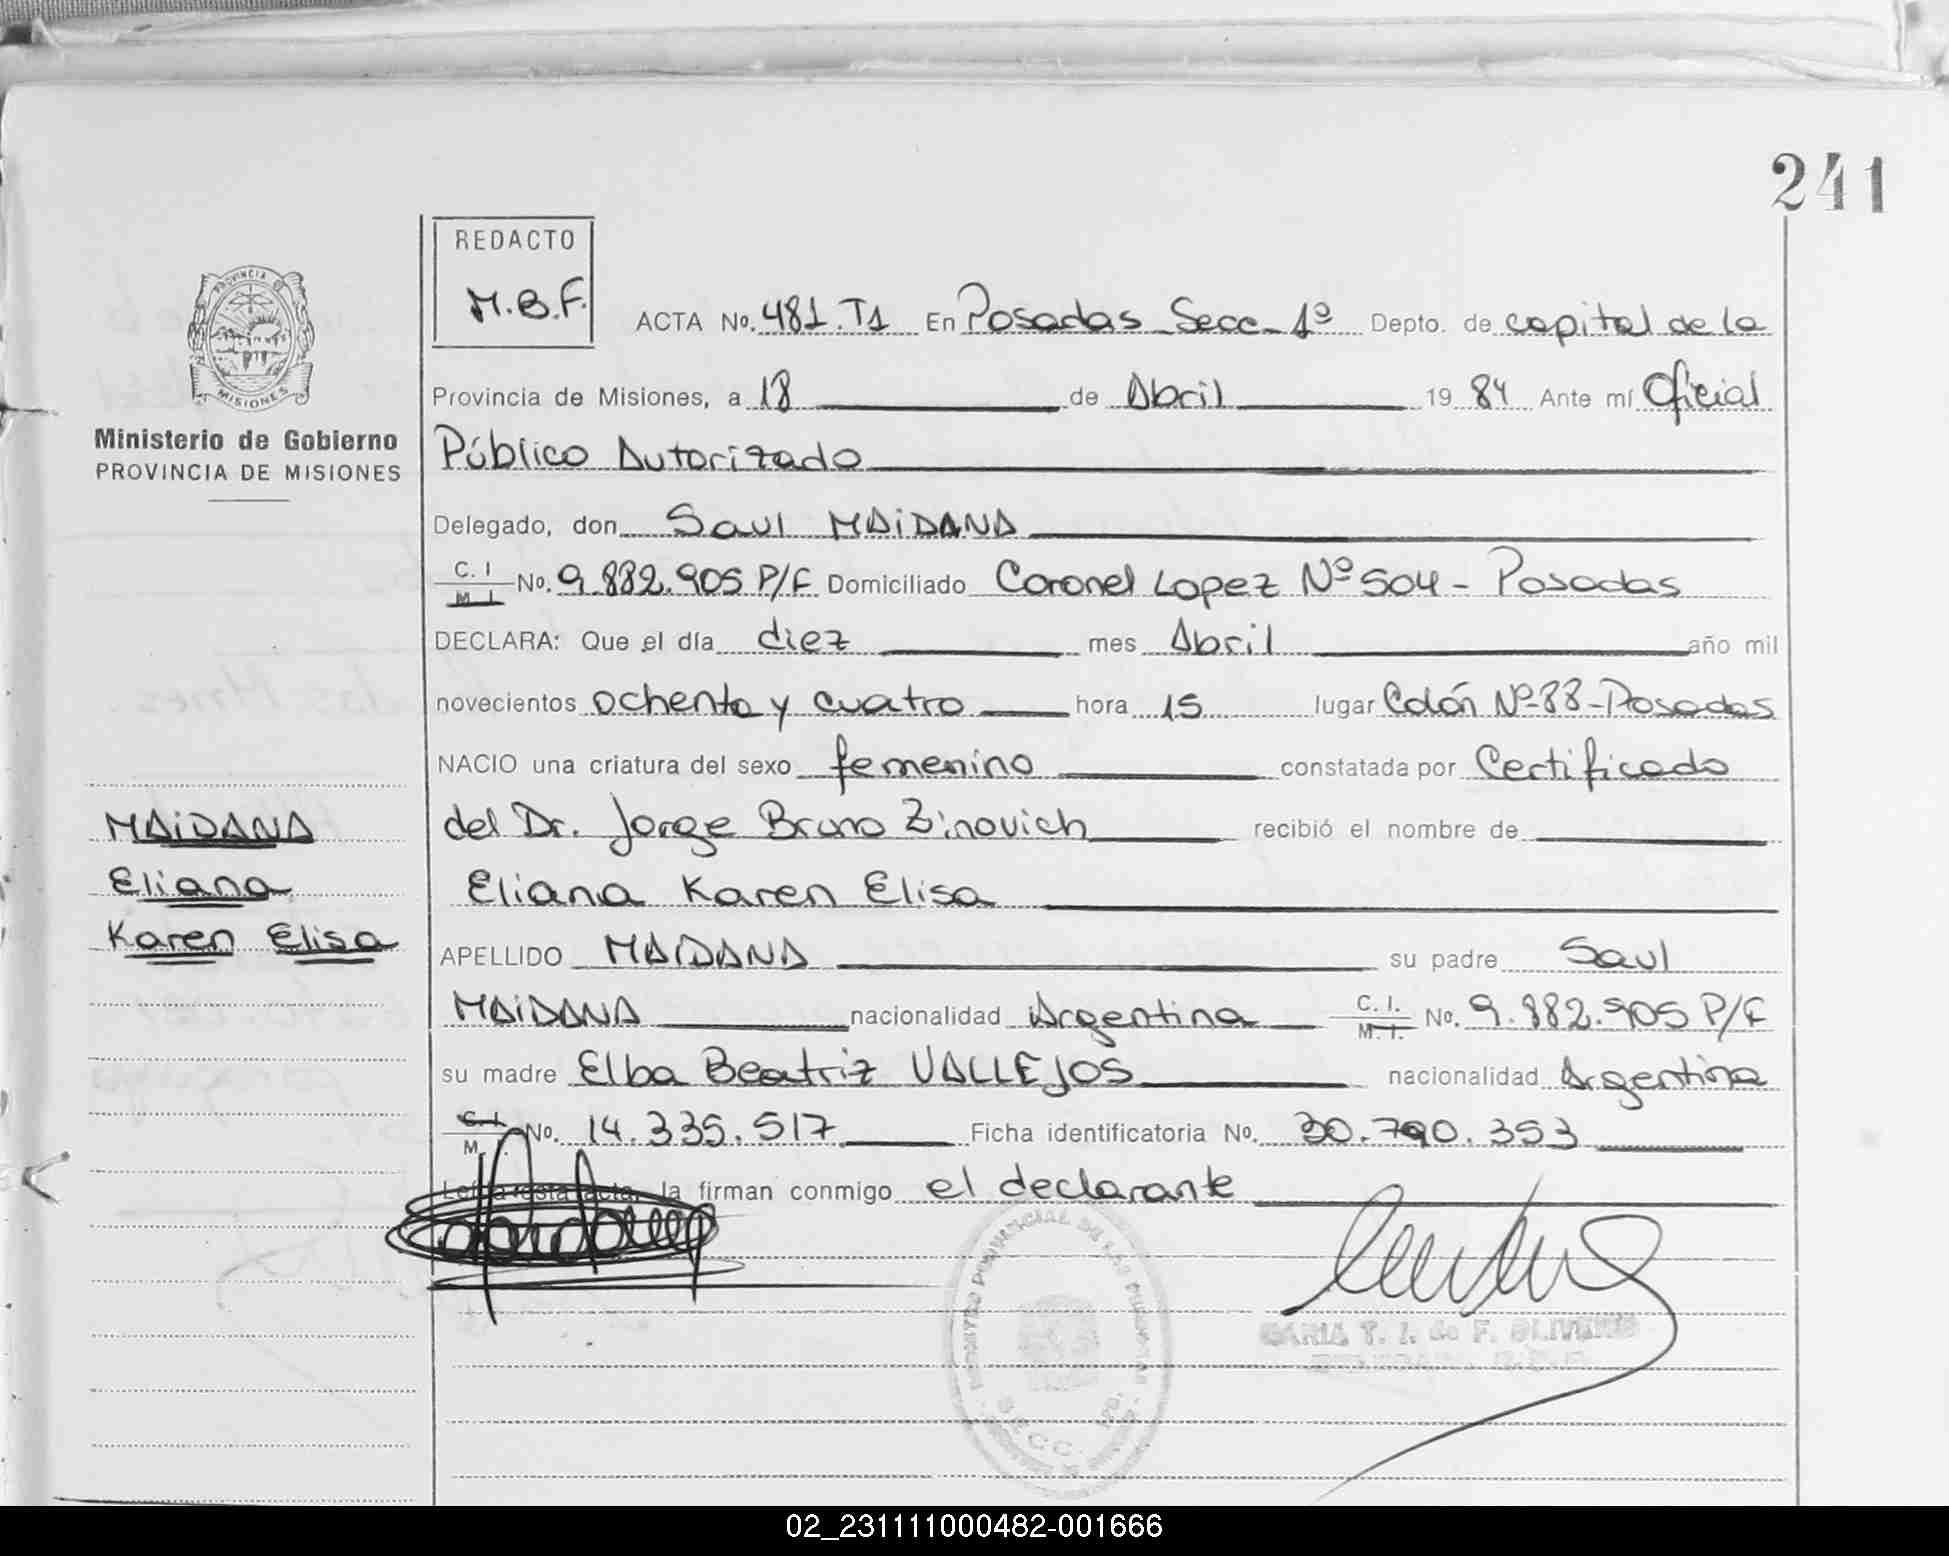 241
REDACTO
M.B.F.
PROVINCIA
MISIONES
Ministerio de Gobierno
PROVINCIA DE MISIONES
ACTA No. 481.T1 En Posadas Secc. 1º Depto. de capital de la
Provincia de Misiones, a 18 de Abril 19 84 Ante mí Oficial
Público Autorizado
Delegado, don Saul MAIDANA
C. I
M. I. No. 9.882.905 P/F Domiciliado Coronel Lopez Nº 504 - Posadas
DECLARA: Que el día diez mes Abril año mil
novecientos ochenta y cuatro hora 15 lugar Colón Nº 88 - Posadas
NACIO una criatura del sexo femenino constatada por Certificado
del Dr. Jorge Bruno Zinovich recibió el nombre de
Eliana Karen Elisa
MAIDANA
Eliana
Karen Elisa
APELLIDO MAIDANA su padre Saul
MAIDANA nacionalidad Argentina C. I.
M. I. No. 9.882.905 P/F
su madre Elba Beatriz VALLEJOS nacionalidad Argentina
C. I.
M. No. 14.335.517 Ficha identificatoria No. 30.790.353
Leída esta acta, la firman conmigo el declarante
SECC. 1RA.
02_231111000482-001666